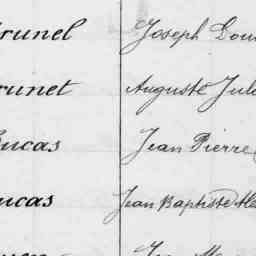 runel Joseph Lou
runet Auguste Jul
ucas Jean Pierre
ucas Jean Baptiste Al